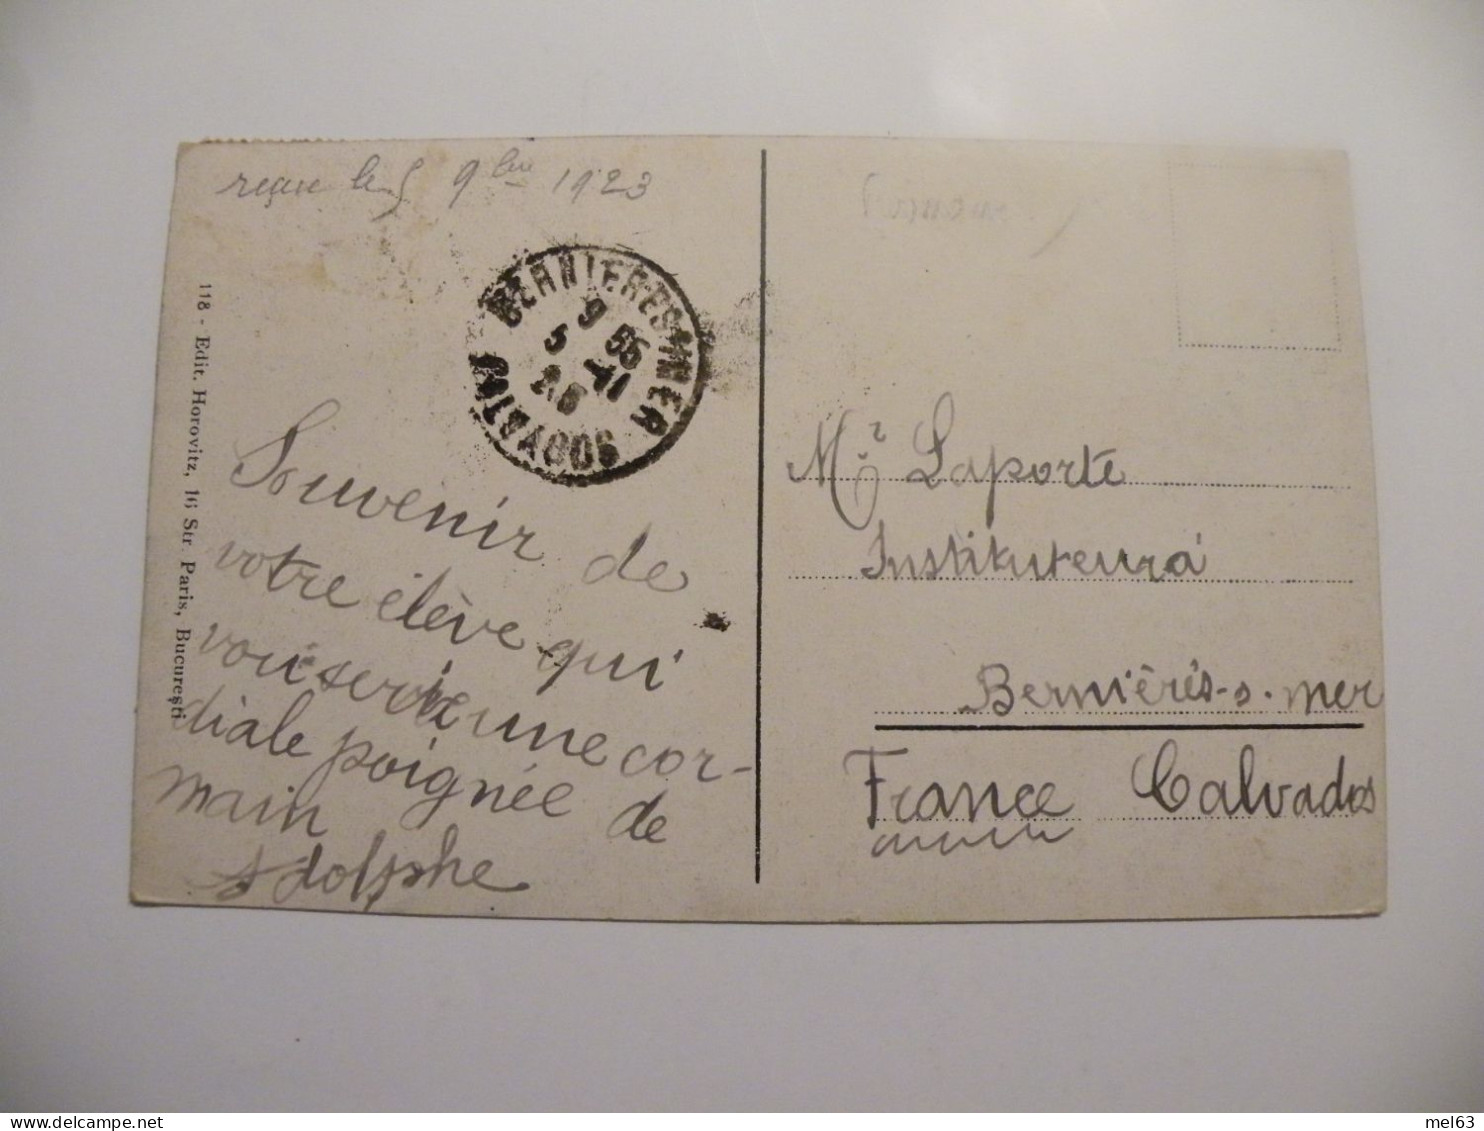 reçue le 5 9bre 1923
BERNIERES-S-MER
9 55
5 -11
23
CALVADOS
118 - Edit. Horovitz, 16 Str. Paris, Bucureşti
Souvenir de
votre élève qui
vous envoie une cor-
diale poignée de
main
Adolphe
Mr Laporte
Instituteur à
Bernières-s-mer
France Calvados
mel63